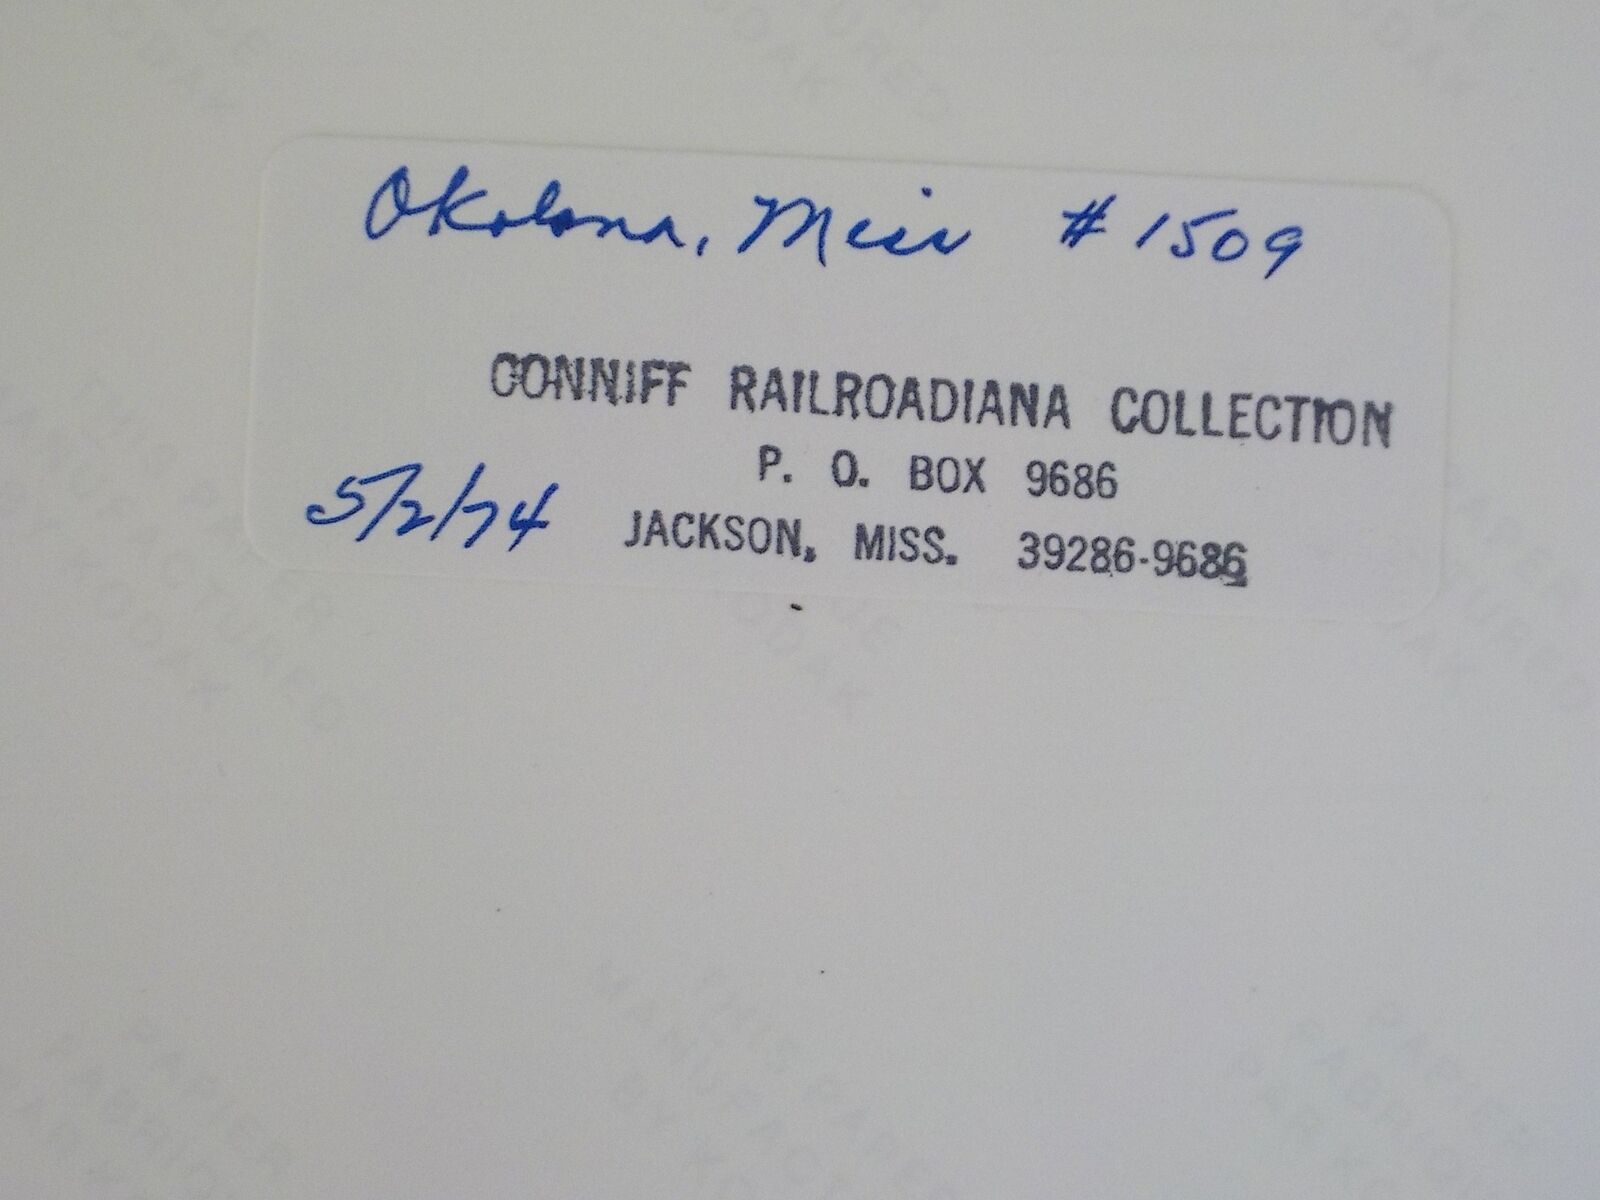 Okolona, Miss # 1509
CONNIFF RAILROADIANA COLLECTION
P. O. BOX 9686
5/2/74 JACKSON, MISS. 39286-9686